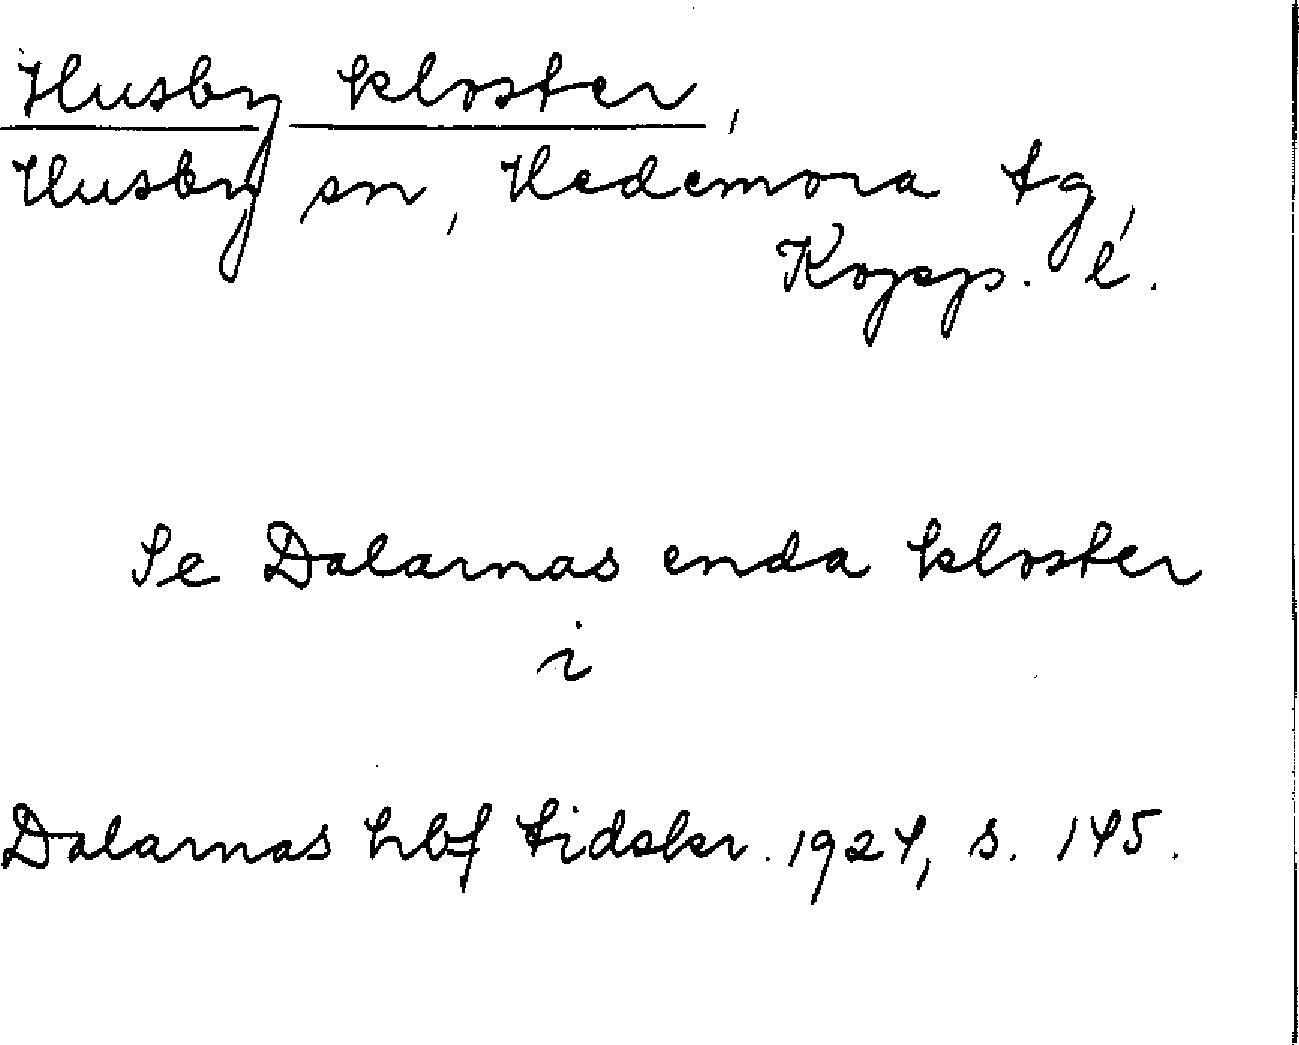 Husby kloster,
Husby sn, Hedemora tg,
Kopp. l.
Se Dalarnas enda kloster
i
Dalarnas hbf tidskr. 1924, s. 145.